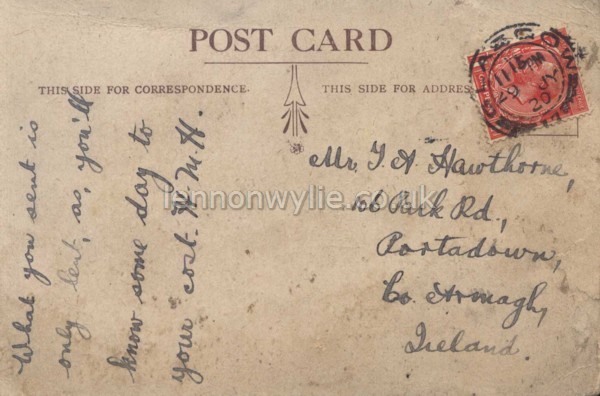 POST CARD
THIS SIDE FOR CORRESPONDENCE.
THIS SIDE FOR ADDRESS
What you sent is
only lent, as, you'll
know some day to
your cost. W.M.H.
Mr. T. A. Hawthorne,
166 Park Rd.,
Portadown,
Co. Armagh,
Ireland.
GLASGOW
11.15 PM
20 JY
20
lennonwylie.co.uk